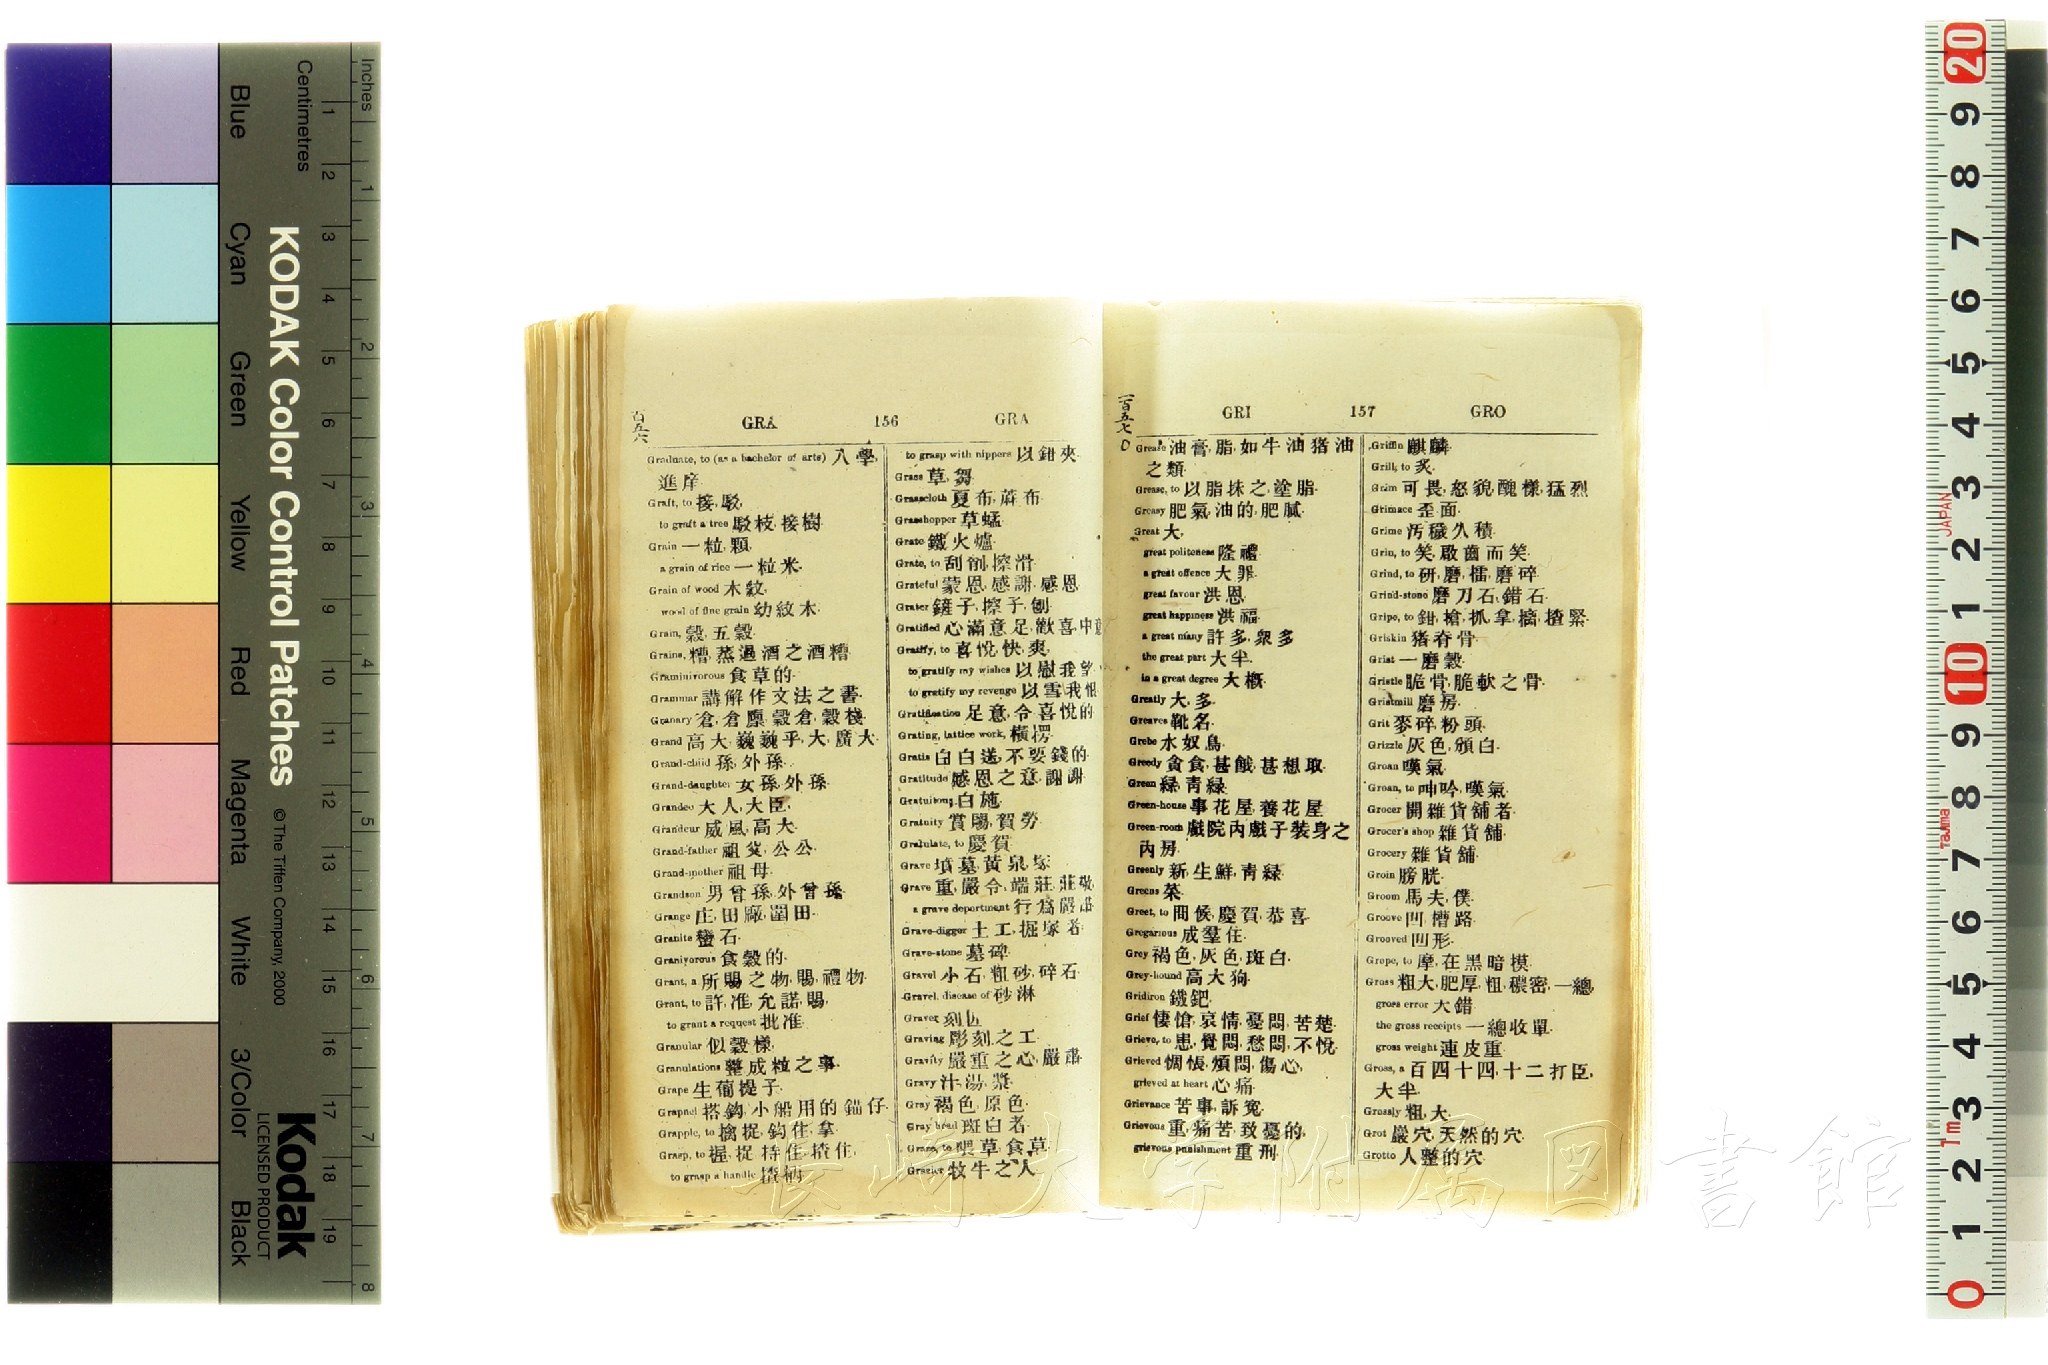 Inches
Centimetres
KODAK Color Control Patches
© The Tiffen Company, 2000
Kodak
LICENSED PRODUCT
Blue
Cyan
Green
Yellow
Red
Magenta
White
3/Color
Black
百五六
GRA 156 GRA
Graduate, to (as a bachelor of arts) 入學,
進庠.
Graft, to 接, 駁,
to graft a tree 駁枝, 接樹.
Grain 一粒, 顆.
a grain of rice 一粒米.
Grain of wood 木紋,
wool of fine grain 幼紋木.
Grain, 穀, 五穀.
Grains, 糟, 蒸過酒之酒糟.
Graminivorous 食草的.
Grammar 講解作文法之書.
Granary 倉, 倉廩, 穀倉, 穀棧.
Grand 高大, 巍巍乎, 大, 廣大.
Grand-child 孫, 外孫.
Grand-daughter 女孫, 外孫.
Grandee 大人, 大臣,
Grandeur 威風, 高大.
Grand-father 祖父, 公公.
Grand-mother 祖母.
Grandson 男曾孫, 外曾孫.
Grange 庄, 田廠, 圍田.
Granite 蠻石.
Granivorous 食穀的.
Grant, a 所賜之物, 賜, 禮物.
Grant, to 許, 准, 允諾, 賜,
to grant a request 批准.
Granular 似穀樣,
Granulations 整成粒之事.
Grape 生葡提子.
Grapnel 搭鈎, 小船用的錨仔.
Grapple, to 擒捉, 鈎住, 拿.
Grasp, to 握, 捉, 持住, 揸住,
to grasp a handle 揸柄.
to grasp with nippers 以鉗夾.
Grass 草, 芻.
Grasscloth 夏布, 蔴布.
Grasshopper 草蜢.
Grate 鐵火爐.
Grate, to 刮削, 擦滑.
Grateful 蒙恩, 感謝, 感恩.
Grater 鏟子, 擦子, 刨.
Gratified 心滿意足, 歡喜, 中意
Gratify, to 喜悅, 快爽,
to gratify my wishes 以慰我望
to gratify my revenge 以雪我恨
Gratification 足意, 令喜悅的
Grating, lattice work, 橫楞.
Gratis 白白送, 不要錢的.
Gratitude 感恩之意, 謝謝.
Gratuitous 白施.
Gratuity 賞賜, 賀勞.
Gratulate, to 慶賀.
Grave 墳墓, 黃泉, 塚.
Grave 重, 嚴令, 端莊, 莊敬.
a grave deportment 行為嚴肅
Grave-digger 土工, 掘塚者.
Grave-stone 墓碑.
Gravel 小石, 粗砂, 碎石.
Gravel, disease of 砂淋.
Graver 刻匠
Graving 彫刻之工.
Gravity 嚴重之心, 嚴肅.
Gravy 汁, 湯, 漿.
Gray 褐色, 原色.
Gray head 斑白者.
Graze, to 喂草, 食草.
Grazier 牧牛之人.
一百五七
GRI 157 GRO
Grease 油, 膏, 脂, 如牛油猪油
之類.
Grease, to 以脂抹之, 塗脂.
Greasy 肥氣, 油的, 肥膩.
Great 大,
great politeness 隆禮.
a great offence 大罪.
great favour 洪恩.
great happiness 洪福.
a great many 許多, 衆多
the great part 大半.
in a great degree 大概.
Greatly 大, 多.
Greaves 靴名.
Grebe 水奴鳥.
Greedy 貪食, 甚餓, 甚想取.
Green 綠, 青綠.
Green-house 事花屋, 養花屋
Green-room 戲院內戲子裝身之
內房.
Greenly 新, 生鮮, 青綠.
Greens 菜.
Greet, to 問候, 慶賀, 恭喜.
Gregarious 成羣住.
Grey 褐色, 灰色, 斑白.
Grey-hound 高大狗.
Gridiron 鐵鈀.
Grief 悽愴, 哀情, 憂悶, 苦楚.
Grieve, to 患, 覺悶, 愁悶, 不悅.
Grieved 惆悵, 煩悶, 傷心,
grieved at heart 心痛.
Grievance 苦事, 訴冤.
Grievous 重, 痛苦, 致憂的,
grievous punishment 重刑.
Griffin 麒麟.
Grill, to 炙.
Grim 可畏, 怒貌, 醜樣, 猛烈
Grimace 歪面.
Grime 汚穢久積.
Grin, to 笑, 啟齒而笑.
Grind, to 研, 磨, 擂, 磨碎.
Grind-stone 磨刀石, 錯石.
Gripe, to 鉗, 搶, 抓, 拿, 擒, 揸緊.
Griskin 猪脊骨.
Grist 一磨穀.
Gristle 脆骨, 脆軟之骨.
Gristmill 磨房.
Grit 麥碎, 粉頭.
Grizzle 灰色, 頒白.
Groan 嘆氣.
Groan, to 呻吟, 嘆氣.
Grocer 開雜貨舖者.
Grocer's shop 雜貨舖.
Grocery 雜貨舖.
Groin 膀胱.
Groom 馬夫, 僕.
Groove 凹, 槽路.
Grooved 凹形.
Grope, to 摩, 在黑暗摸.
Gross 粗大, 肥厚, 粗, 稠密, 一總,
gross error 大錯.
the gross receipts 一總收單.
gross weight 連皮重.
Gross, a 百四十四, 十二打臣,
大半.
Grossly 粗, 大.
Grot 巖穴, 天然的穴.
Grotto 人整的穴.
長崎大学附属図書館
JAPAN
Tajima
1m